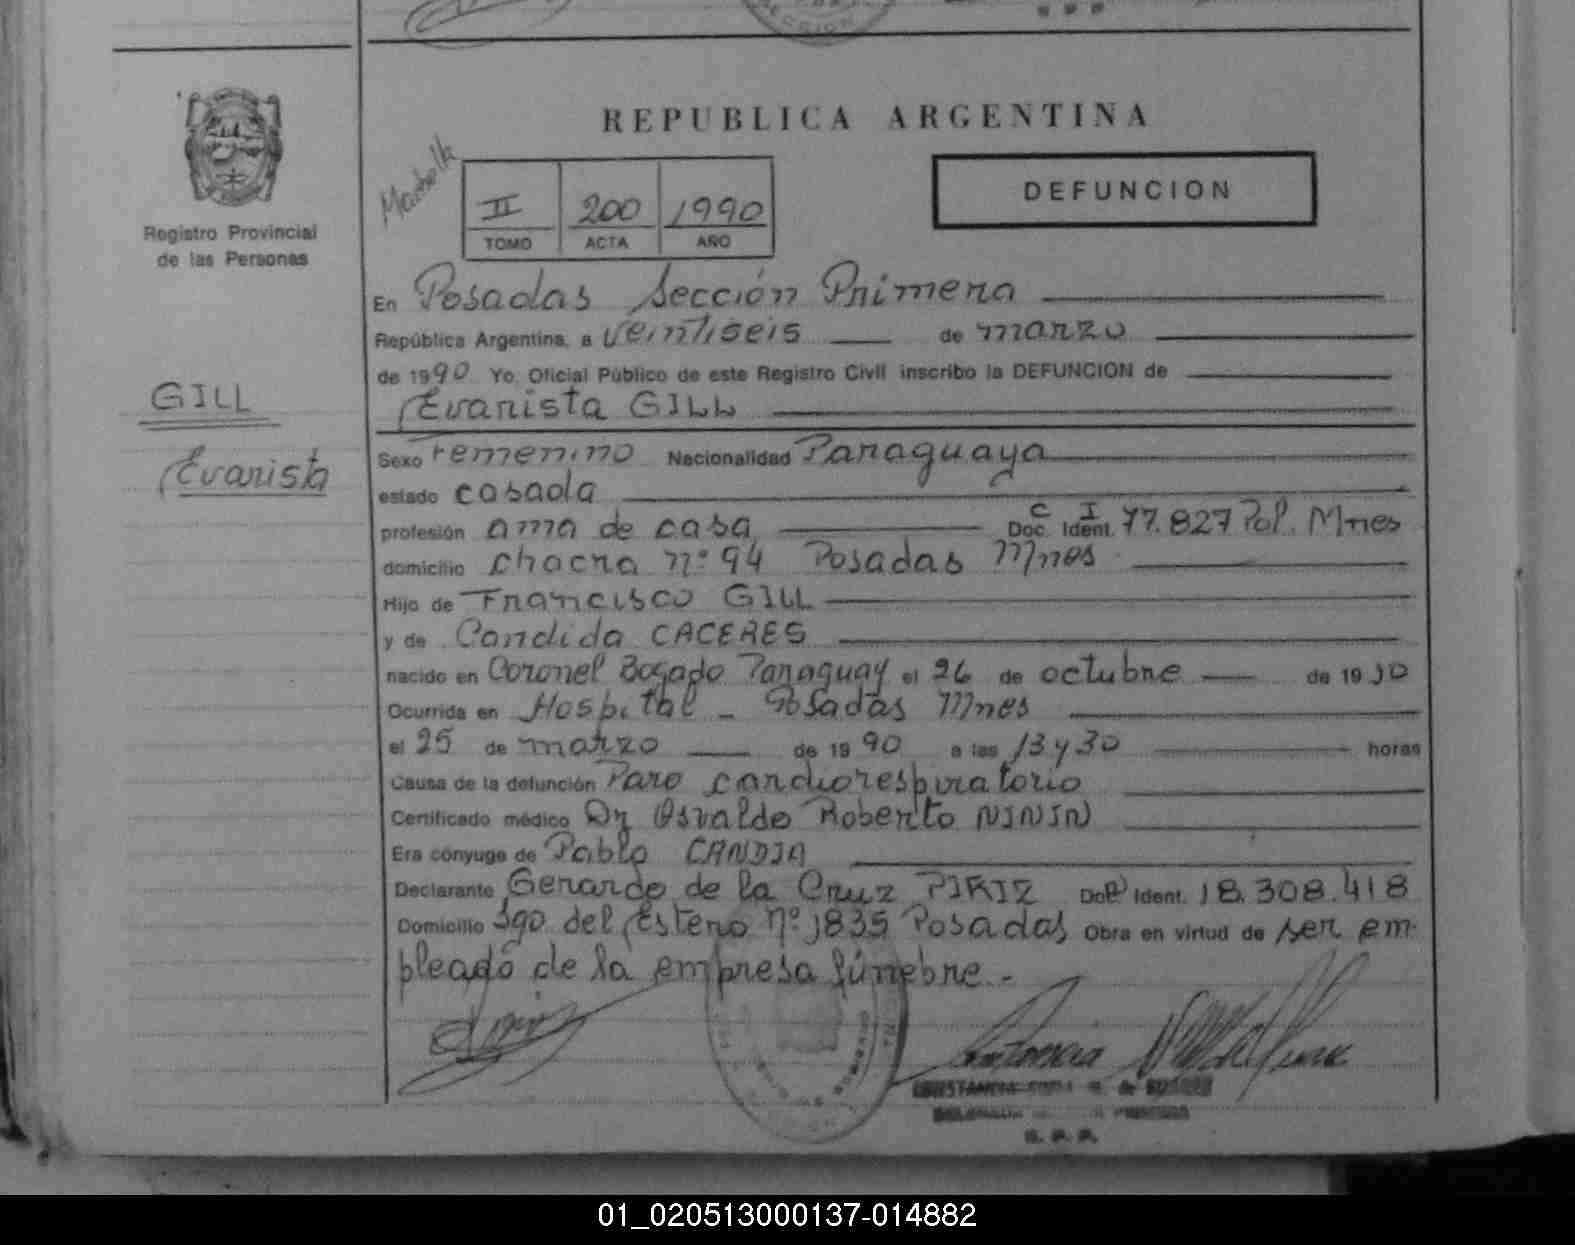 REPUBLICA ARGENTINA
II 200 1990
TOMO ACTA AÑO
DEFUNCION
Registro Provincial
de las Personas
GILL
Evarista
En Posadas Sección Primera
República Argentina, a veintiseis de marzo
de 1990 Yo, Oficial Público de este Registro Civil inscribo la DEFUNCION de
Evarista GILL
Sexo Femenino Nacionalidad Paraguaya
estado casada
profesión ama de casa Doc. Ident. C I 77.827 Pol. Mnes
domicilio chacra nº 94 Posadas Mnes
Hijo de Francisco GILL
y de Candida CACERES
nacido en Coronel Bogado Paraguay el 26 de octubre de 1910
Ocurrida en Hospital - Posadas Mnes
el 25 de marzo de 1990 a las 13 y 30 horas
Causa de la defunción Paro cardiorespiratorio
Certificado médico Dr Osvaldo Roberto NININ
Era cónyuge de Pablo CANDIA
Declarante Gerardo de la Cruz PIRIZ Doc Ident. 18.308.418
Domicilio Sgo del Estero Nº 1835 Posadas Obra en virtud de ser em-
pleado de la empresa fúnebre.-
01_020513000137-014882